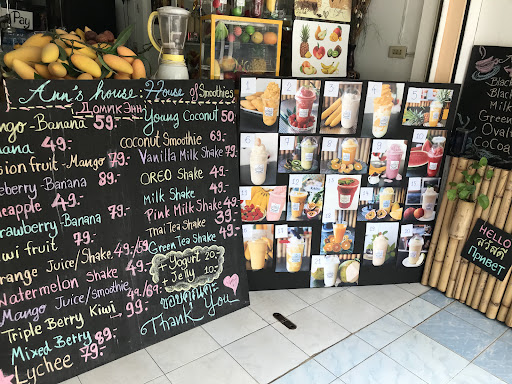 Pay
Ann's house House of Smoothies
Домик Энн
ngo-Banana 59.-
nana 49.-
sion fruit-Mango 79.-
eberry-Banana 89.-
neapple 49.-
rawberry-Banana 79.-
iwi fruit
range Juice/Shake 49/69
Watermelon Shake 49.-
Mango Juice/smoothie 49/59
Triple Berry Kiwi 99.-
Mixed Berry 89.-
Lychee 79.-
Young Coconut 50.-
coconut Smoothie 69.-
Vanilla Milk Shake 79.-
OREO Shake 49.-
Milk Shake 49.-
Pink Milk Shake 49.-
Thai Tea Shake 39.-
Green Tea Shake 49.-
+ Yogurt 20.-
+ Jelly 10.-
ขอบคุณค่ะ
Thank You
1 2 3 4 5
6 7 8 9 10
Black
Black
Milk
Green
Ovalt
Cocoa
HELLO
สวัสดี
Привет